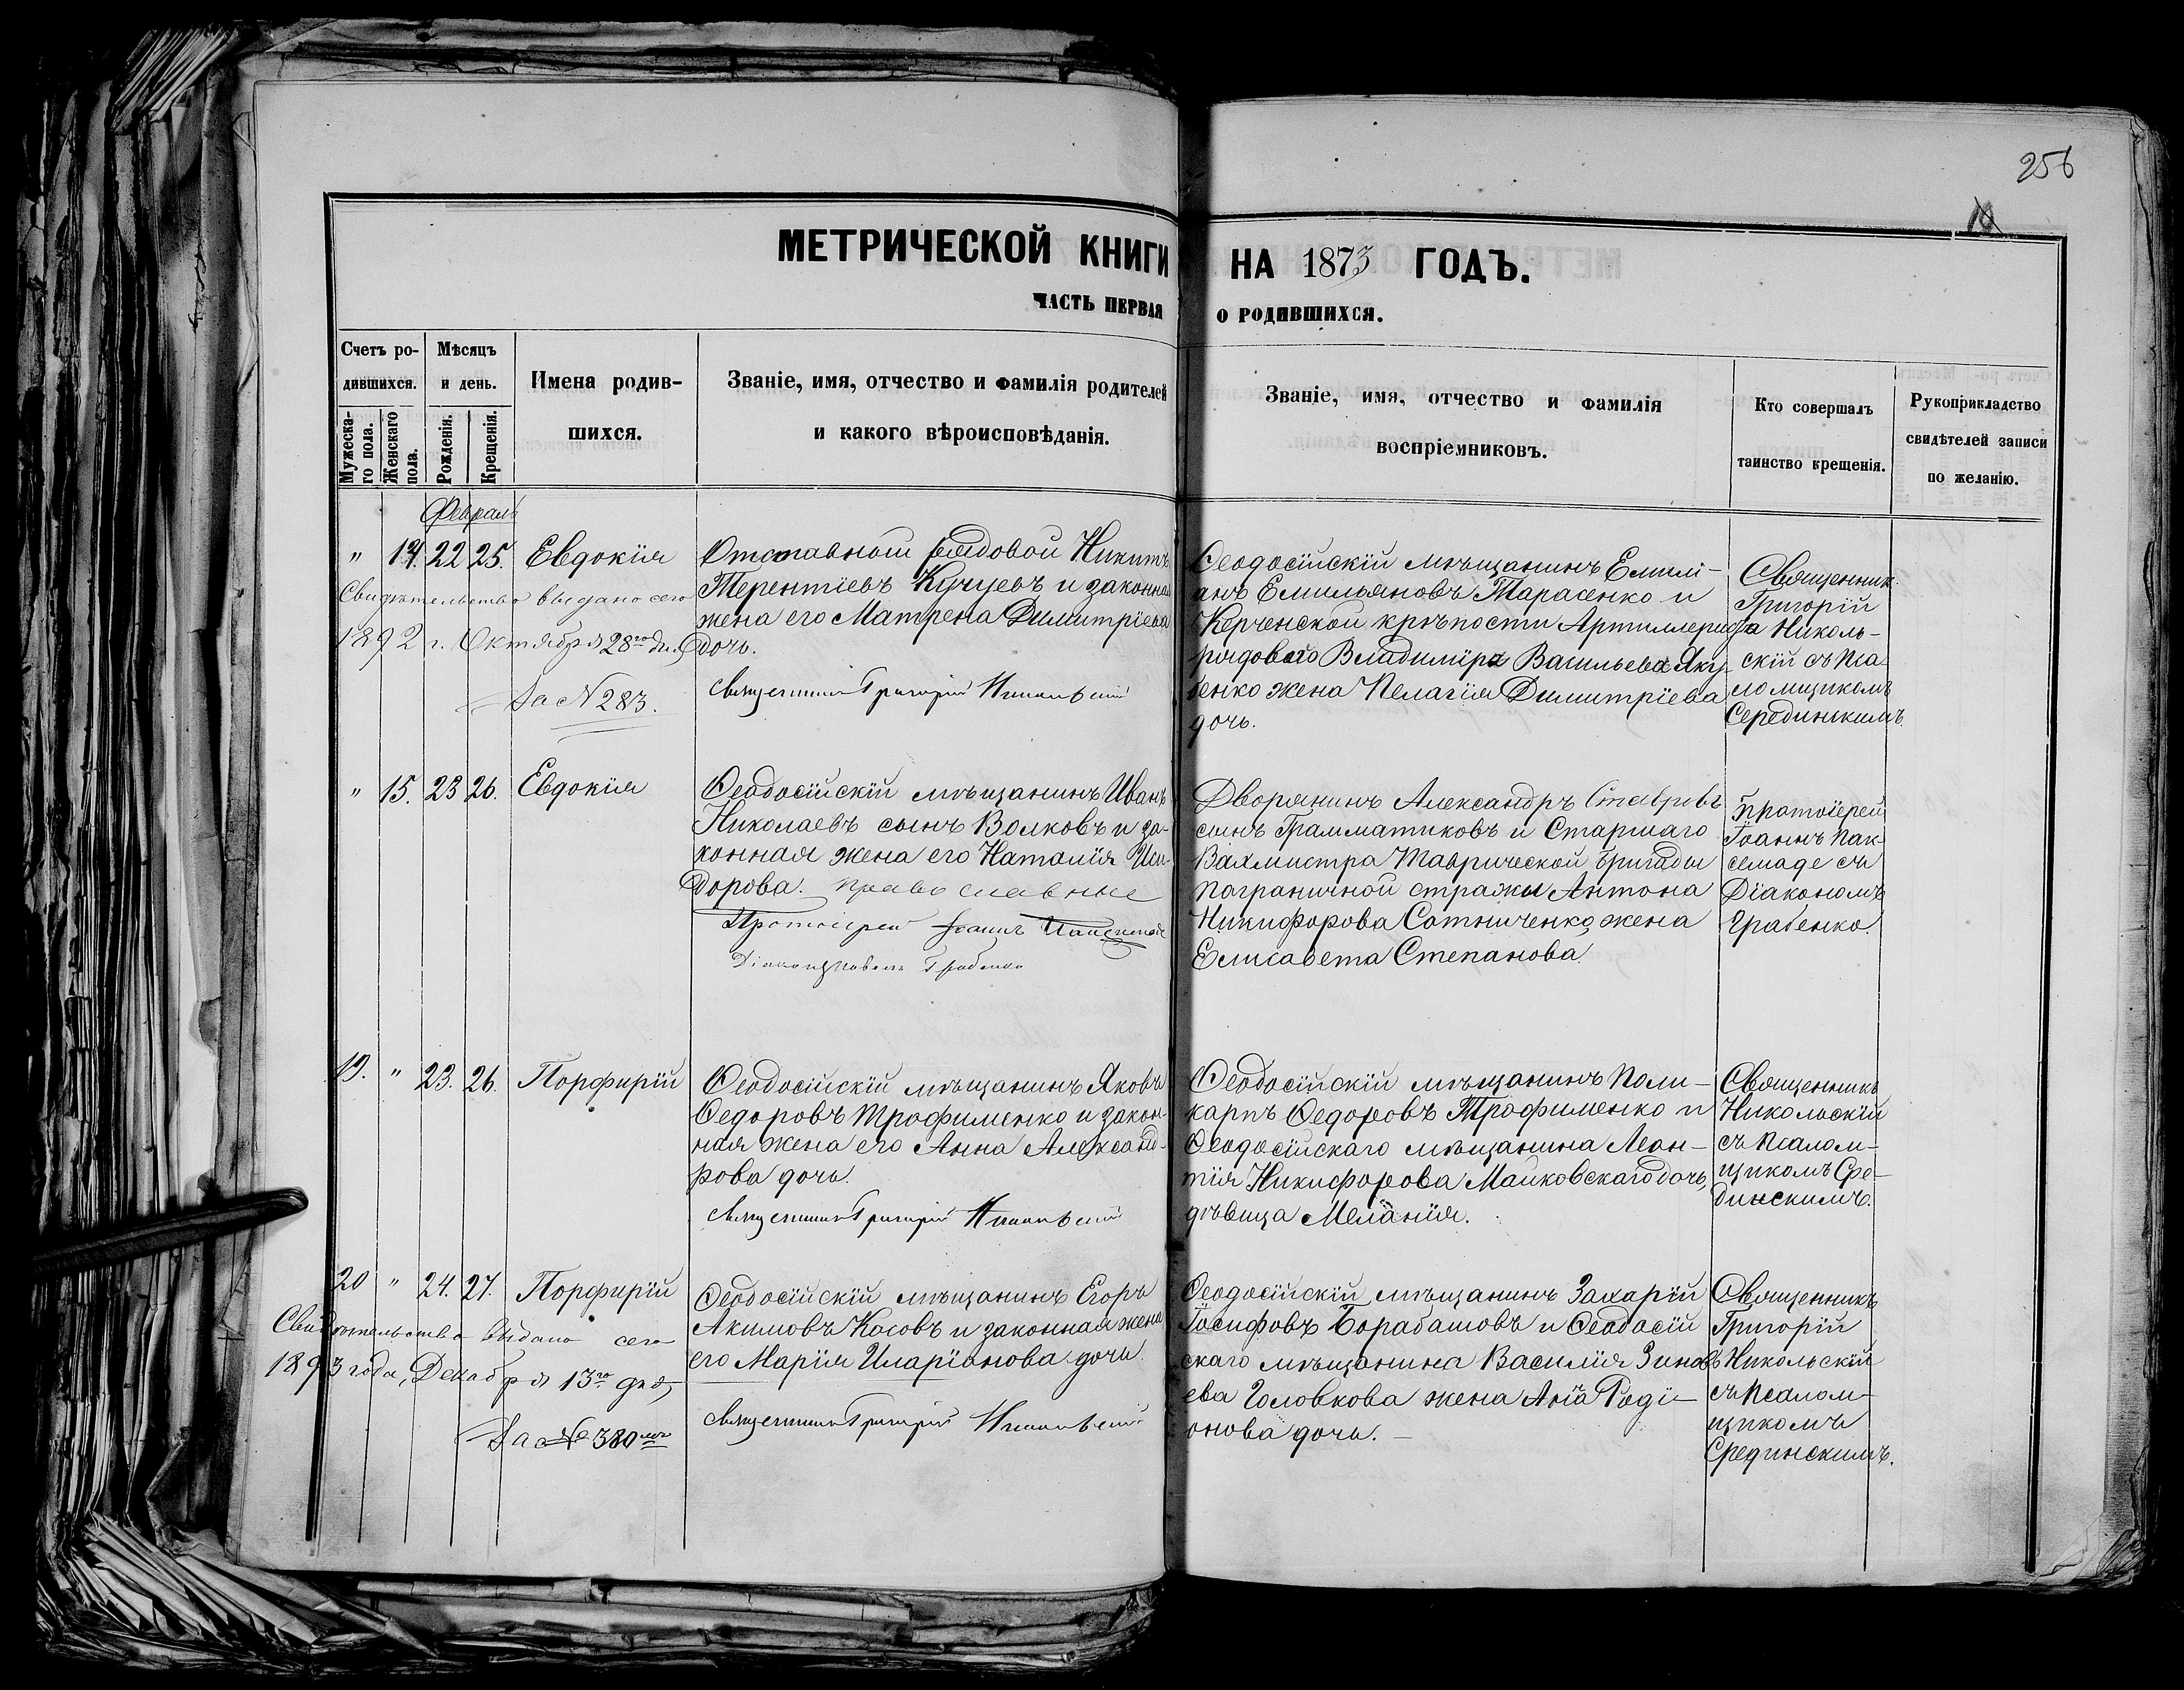 256
МЕТРИЧЕСКОЙ КНИГИ НА 1873 ГОДЪ.
ЧАСТЬ ПЕРВАЯ О РОДИВШИХСЯ.
Счетъ ро-
дившихся.
Мужеска-
го пола.
Женскаго
пола.
Мѣсяцъ
и день.
Рожденія.
Крещенія.
Имена родив-
шихся.
Званіе, имя, отчество и фамилія родителей
и какого вѣроисповѣданія.
Званіе, имя, отчество и фамилія
воспріемниковъ.
Кто совершалъ
таинство крещенія.
Рукоприкладство
свидѣтелей записи
по желанію.
Февраль
" 14. 22 25. Евдокія
Свидѣтельство выдано сего
1892 г. Октября 28го дня
За № 283.
Отставной рядовой Никита
Терентіевъ и законная
жена его Матрена Димитріева
дочь.
Священникъ Григорій Никольскій
Ѳеодосійскій мѣщанинъ Емилі-
анъ Емильяновъ Тарасенко и
Керченской крѣпости Артиллеріи
рядоваго Владиміра Васильева Яку-
бенко жена Пелагія Димитріева
дочь.
Священник
Григорій
Николь-
скій съ Пса-
ломщикомъ
Серединскимъ.
" 15. 23 26. Евдокія
Ѳеодосійскій мѣщанинъ Иванъ
Николаевъ сынъ Волковъ и за-
конная жена его Наталія Иси-
дорова. православные
Протоіерей Іоаннъ Паксимаде
Діаконъ Грабенко
Дворянинъ Александръ Ставровъ
сынъ Грамматиковъ и Старшаго
Вахмистра Таврической бригады
пограничной стражи Антона
Никифорова Сотниченко жена
Елисавета Степанова.
Протоіерей
Іоаннъ Пак-
семаде съ
Діакономъ
Грабенко.
19. " 23. 26. Порфирій
Ѳеодосійскій мѣщанинъ Яковъ
Ѳедоровъ Трофименко и закон-
ная жена его Анна Александ-
рова дочь.
Священникъ Григорій Никольскій
Ѳеодосійскій мѣщанинъ Поли-
карпъ Ѳедоровъ Трофименко и
Ѳеодосійскаго мѣщанина Леон-
тія Никифорова Майковскаго дочь,
дѣвица Меланія.
Священникъ
Никольскій
съ псалом-
щикомъ Сре-
динскимъ.
20 " 24. 27. Порфирій
Свидѣтельство выдано сего
1893 года, Декабря 13го дня,
За № 380мъ
Ѳеодосійскій мѣщанинъ Егоръ
Акимовъ Косовъ и законная жена
его Марія Иларіонова дочь.
Священникъ Григорій Никольскій
Ѳеодосійскій мѣщанинъ Захарій
Іосифовъ Борабашовъ и Ѳеодосій
скаго мѣщанина Василія Зиновь
ева Головкова жена Анна Роді-
онова дочь. —
Священникъ
Григорій
Никольскій
съ псалом-
щикомъ
Срединскимъ.